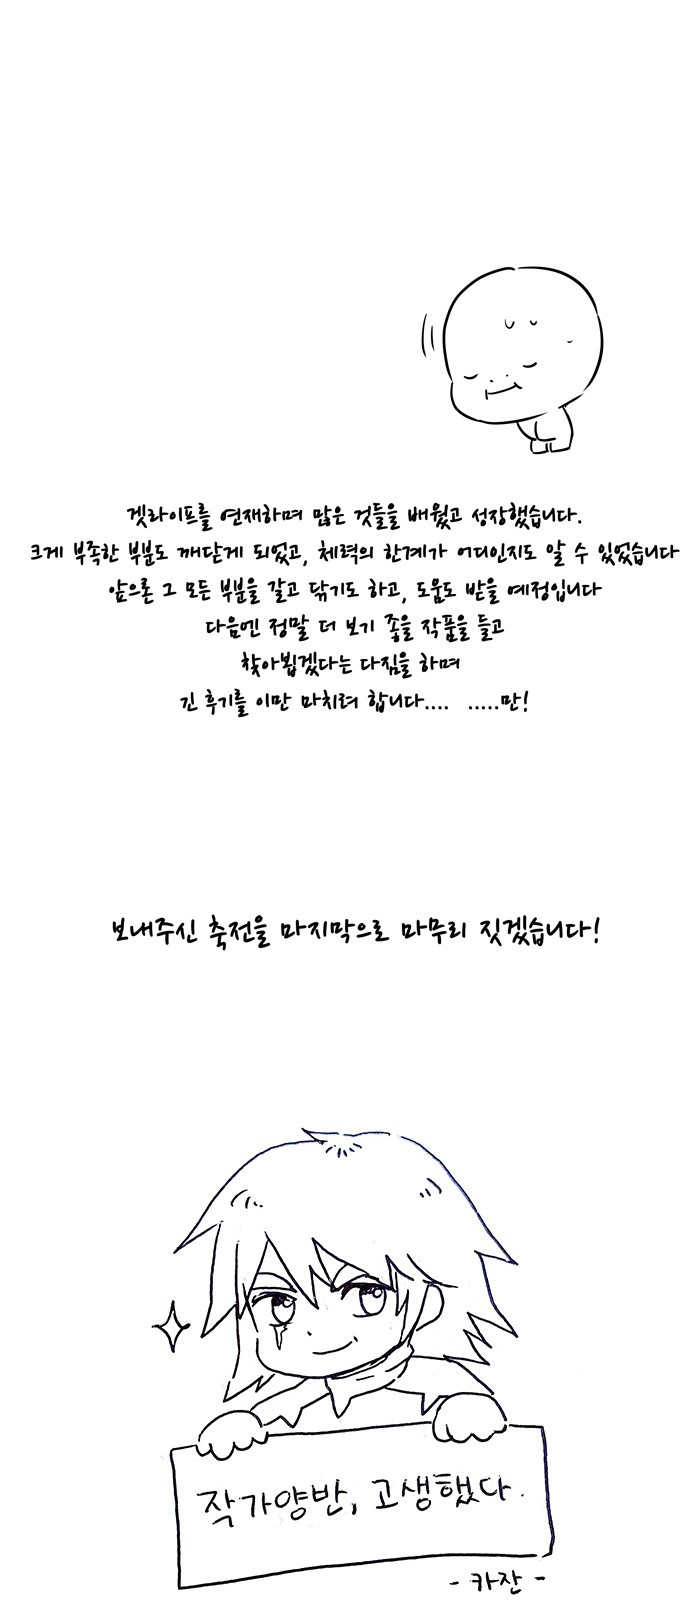 겟라이프를 연재하며 많은 것들을 배웠고 성장했습니다.
크게 부족한 부분도 깨닫게 되었고, 체력의 한계가 어디인지도 알 수 있었습니다
앞으론 그 모든 부분을 갈고 닦기도 하고, 도움도 받을 예정입니다
다음엔 정말 더 보기 좋을 작품을 들고
찾아뵙겠다는 다짐을 하며
긴 후기를 이만 마치려 합니다.... .....만!
보내주신 축전을 마지막으로 마무리 짓겠습니다!
작가양반, 고생했다.
- 카잔 -